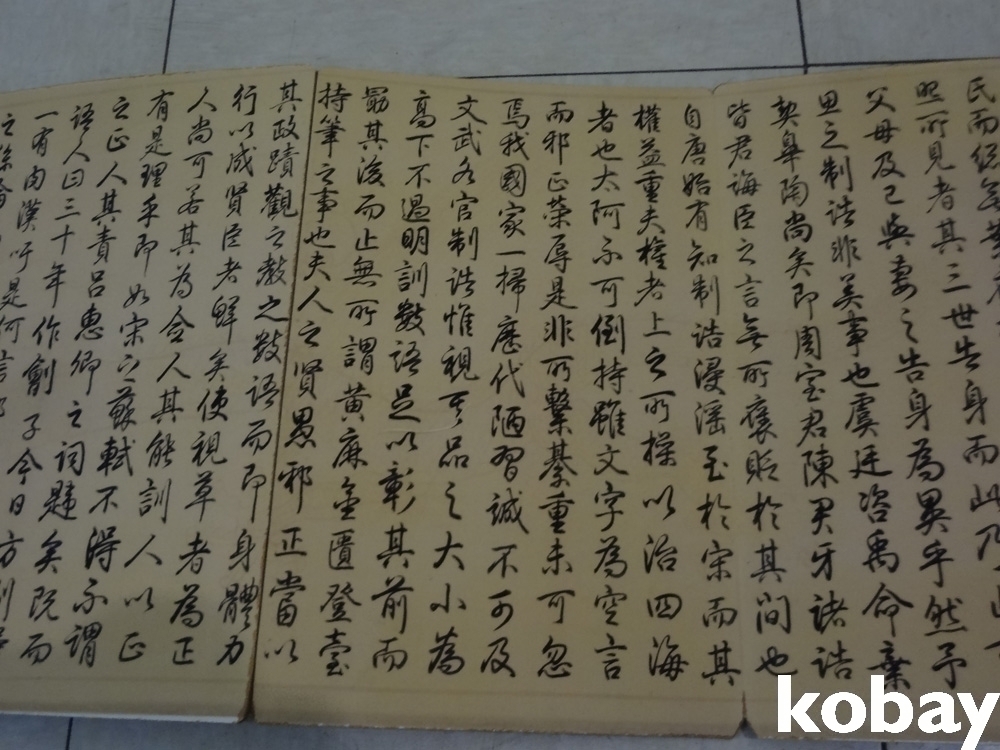 民而
照所見者其三世告身而此乃
父母及己與妻之告身為異乎然予
思之制誥非美事也虞廷咨禹命棄
契皐陶尚矣即周室君陳君牙諸誥
皆君誨臣之言無所褒貶於其間也
自唐始有知制誥浸淫至於宋而其
權益重夫權者上之所操以治四海
者也太阿不可倒持雖文字為空言
而邪正榮辱是非所繫綦重未可忽
焉我國家一掃歷代陋習誠不可及
文武各官制誥惟視其品之大小為
高下不過明訓數語足以彰其前而
勗其後而止無所謂黃麻金匱登臺
持筆之事也夫人之賢愚邪正當以
其政蹟觀之教之數語而即身體力
行以成賢臣者鮮矣使視草者為正
人尚可若其為僉人其能訓人以正
有是理乎即如宋之蘇軾不得不謂
之正人其責呂惠卿之詞韙矣既而
語人曰三十年作劊子今日方剮得
一有肉漢吁是何言耶
之孫
kobay